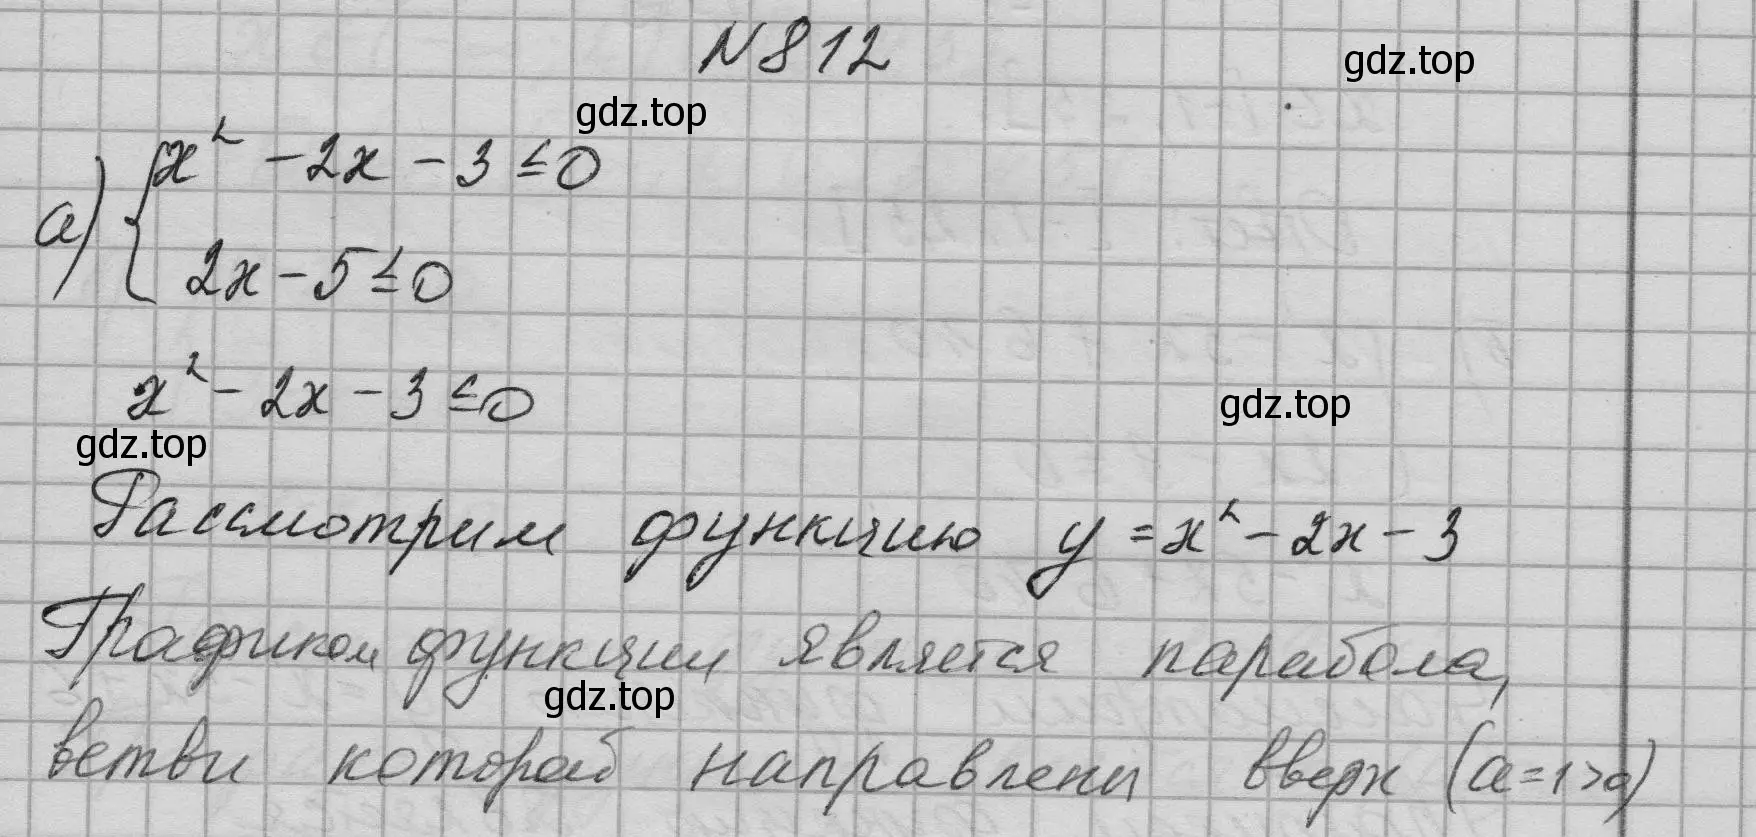 N 812
gdz.top
gdz.top
а) { x² - 2x - 3 ≤ 0
2x - 5 ≤ 0
x² - 2x - 3 ≤ 0
gdz.top
gdz.top
Рассмотрим функцию y = x² - 2x - 3
Графиком функции является парабола,
gdz.top
ветви которой направлены вверх (a = 1 > 0)